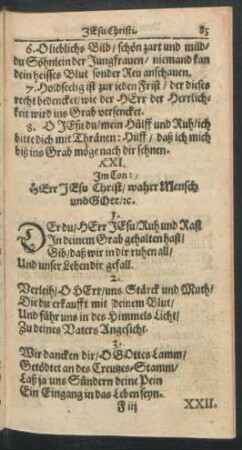 JEsu Christi. 85
6. O lieblichs Bild / schön zart und mild /
du Söhnlein der Jungfrauen / niemand kan
dein heisses Blut sonder Reu anschauen.
7. Holdseelig ist zur jeden Frist / der dieses
recht bedencket / wie der HErr der Herrlich-
keit wird ins Grab versencket.
8. O JEsu du / mein Hülff und Ruh / ich
bitte dich mit Thränen: Hülff / daß ich mich
biß ins Grab möge nach dir sehnen.
XXI.
Im Ton:
HErr JEsu Christ / waher Mensch
und GOtt / ꝛc.
1.
DEr du / HErr JEsu / Ruh und Rast
In deinem Grab gehalten hast /
Gib / daß wir in dir ruhen all /
Und unser Leben dir gefall.
2.
Verleih / O HErr / uns Stärck und Muth /
Die du erkaufft mit deinem Blut /
Und führ uns in des Himmels Licht /
Zu deines Vaters Angesicht.
3.
Wir dancken dir / O GOttes Lamm /
Getödtet an des Creutzes-Stamm /
Laß ja uns Sündern deine Pein
Ein Eingang in das Leben seyn.
F iij XXII.